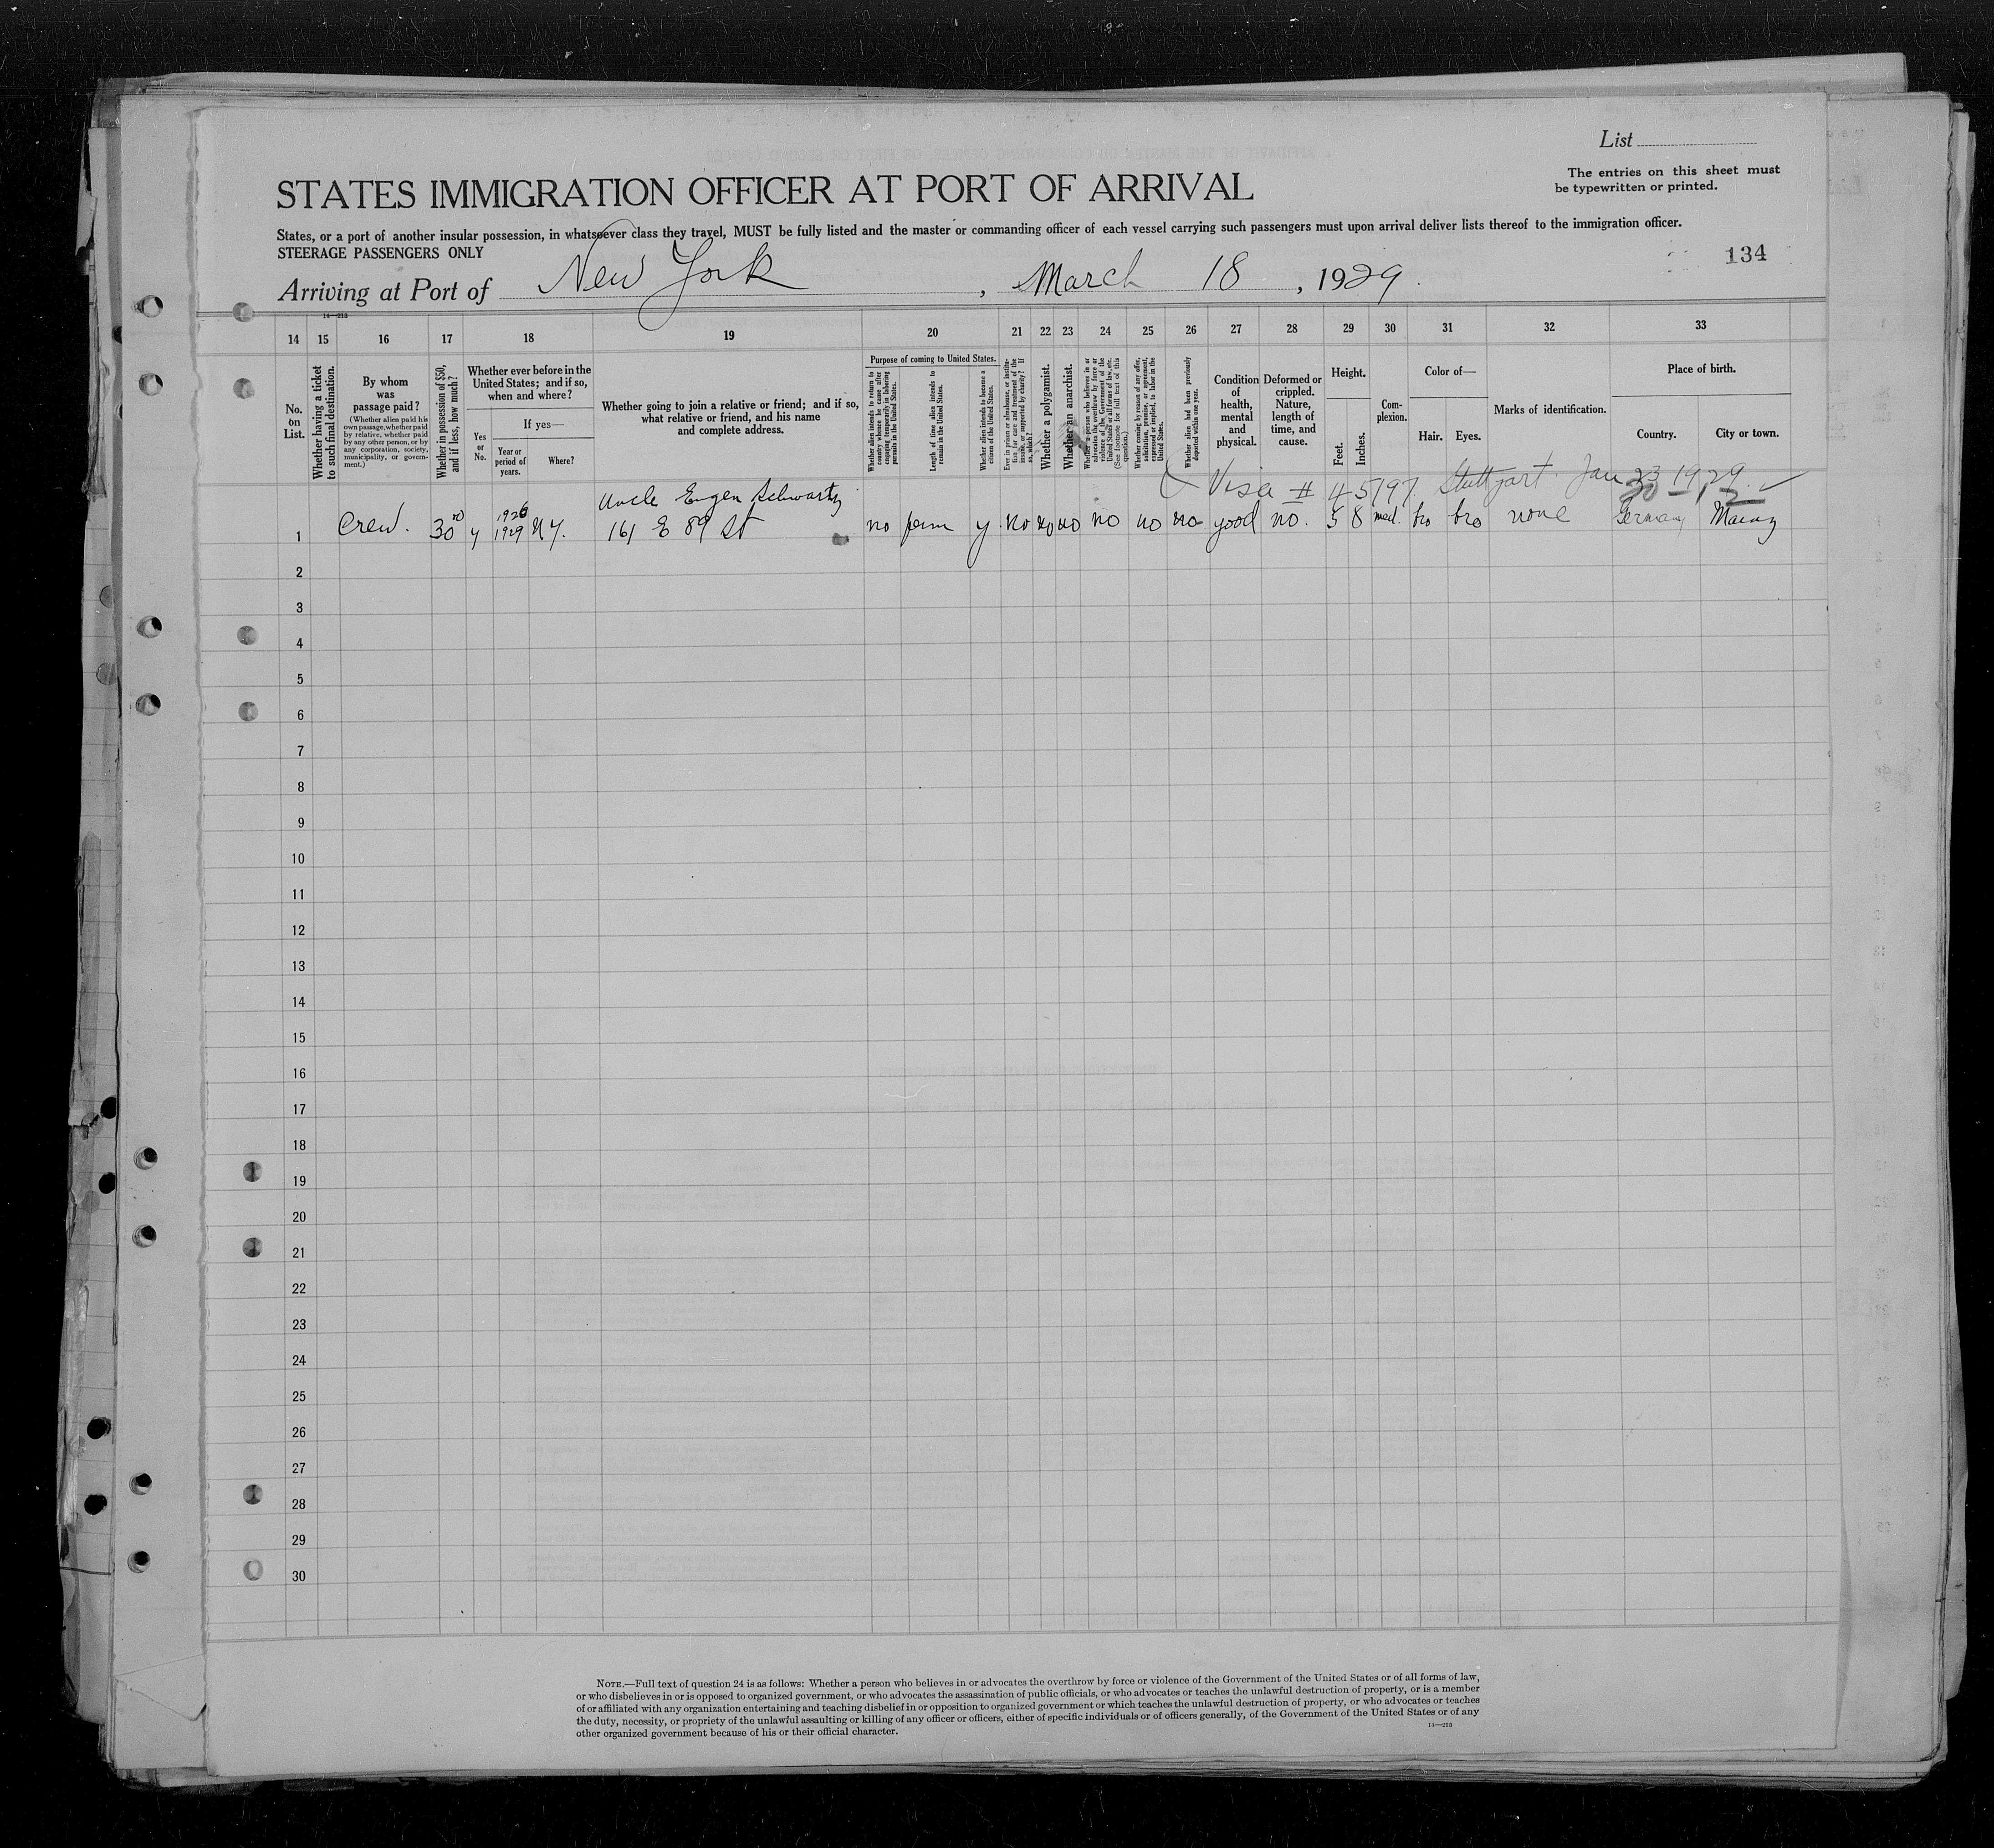 List
The entries on this sheet must
be typewritten or printed.
STATES IMMIGRATION OFFICER AT PORT OF ARRIVAL
States, or a port of another insular possession, in whatsoever class they travel, MUST be fully listed and the master or commanding officer of each vessel carrying such passengers must upon arrival deliver lists thereof to the immigration officer.
STEERAGE PASSENGERS ONLY
134
Arriving at Port of New York, March 18, 1929.
14—213
14 15 16 17 18 19 20 21 22 23 24 25 26 27 28 29 30 31 32 33
No.
on
List.
Whether having a ticket
to such final destination.
By whom
was
passage paid?
(Whether alien paid his
own passage, whether paid
by relative, whether paid
by any other person, or by
any corporation, society,
municipality, or govern-
ment.)
Whether in possession of $50,
and if less, how much?
Whether ever before in the
United States; and if so,
when and where?
Yes
or
No.
If yes—
Year or
period of
years.
Where?
Whether going to join a relative or friend; and if so,
what relative or friend, and his name
and complete address.
Purpose of coming to United States.
Whether alien intends to return to
country whence he came after
engaging temporarily in laboring
pursuits in the United States.
Length of time alien intends to
remain in the United States.
Whether alien intends to become a
citizen of the United States.
Ever in prison or almshouse, or institu-
tion for care and treatment of the
insane, or supported by charity? If
so, which?
Whether a polygamist.
Whether an anarchist.
Whether a person who believes in or
advocates the overthrow by force or
violence of the Government of the
United States or all forms of law, etc.
(See footnote for full text of this
question.)
Whether coming by reason of any offer,
solicitation, promise, or agreement,
expressed or implied, to labor in the
United States.
Whether alien had been previously
deported within one year.
Condition
of
health,
mental
and
physical.
Deformed or
crippled.
Nature,
length of
time, and
cause.
Height.
Feet.
Inches.
Com-
plexion.
Color of—
Hair. Eyes.
Marks of identification.
Place of birth.
Country. City or town.
Visa # 45197 Stuttgart Jan 23 1929
Uncle Eugen Schwartz
1 Crew. 30 y 1926 1929 N.Y. 161 E 89 St no perm y. no no no no no no good no. 5 8 med. bro bro none Germany Mainz
2
3
4
5
6
7
8
9
10
11
12
13
14
15
16
17
18
19
20
21
22
23
24
25
26
27
28
29
30
NOTE.—Full text of question 24 is as follows: Whether a person who believes in or advocates the overthrow by force or violence of the Government of the United States or of all forms of law,
or who disbelieves in or is opposed to organized government, or who advocates the assassination of public officials, or who advocates or teaches the unlawful destruction of property, or is a member
of or affiliated with any organization entertaining and teaching disbelief in or opposition to organized government or which teaches the unlawful destruction of property, or who advocates or teaches
the duty, necessity, or propriety of the unlawful assaulting or killing of any officer or officers, either of specific individuals or of officers generally, of the Government of the United States or of any
other organized government because of his or their official character.
14—213